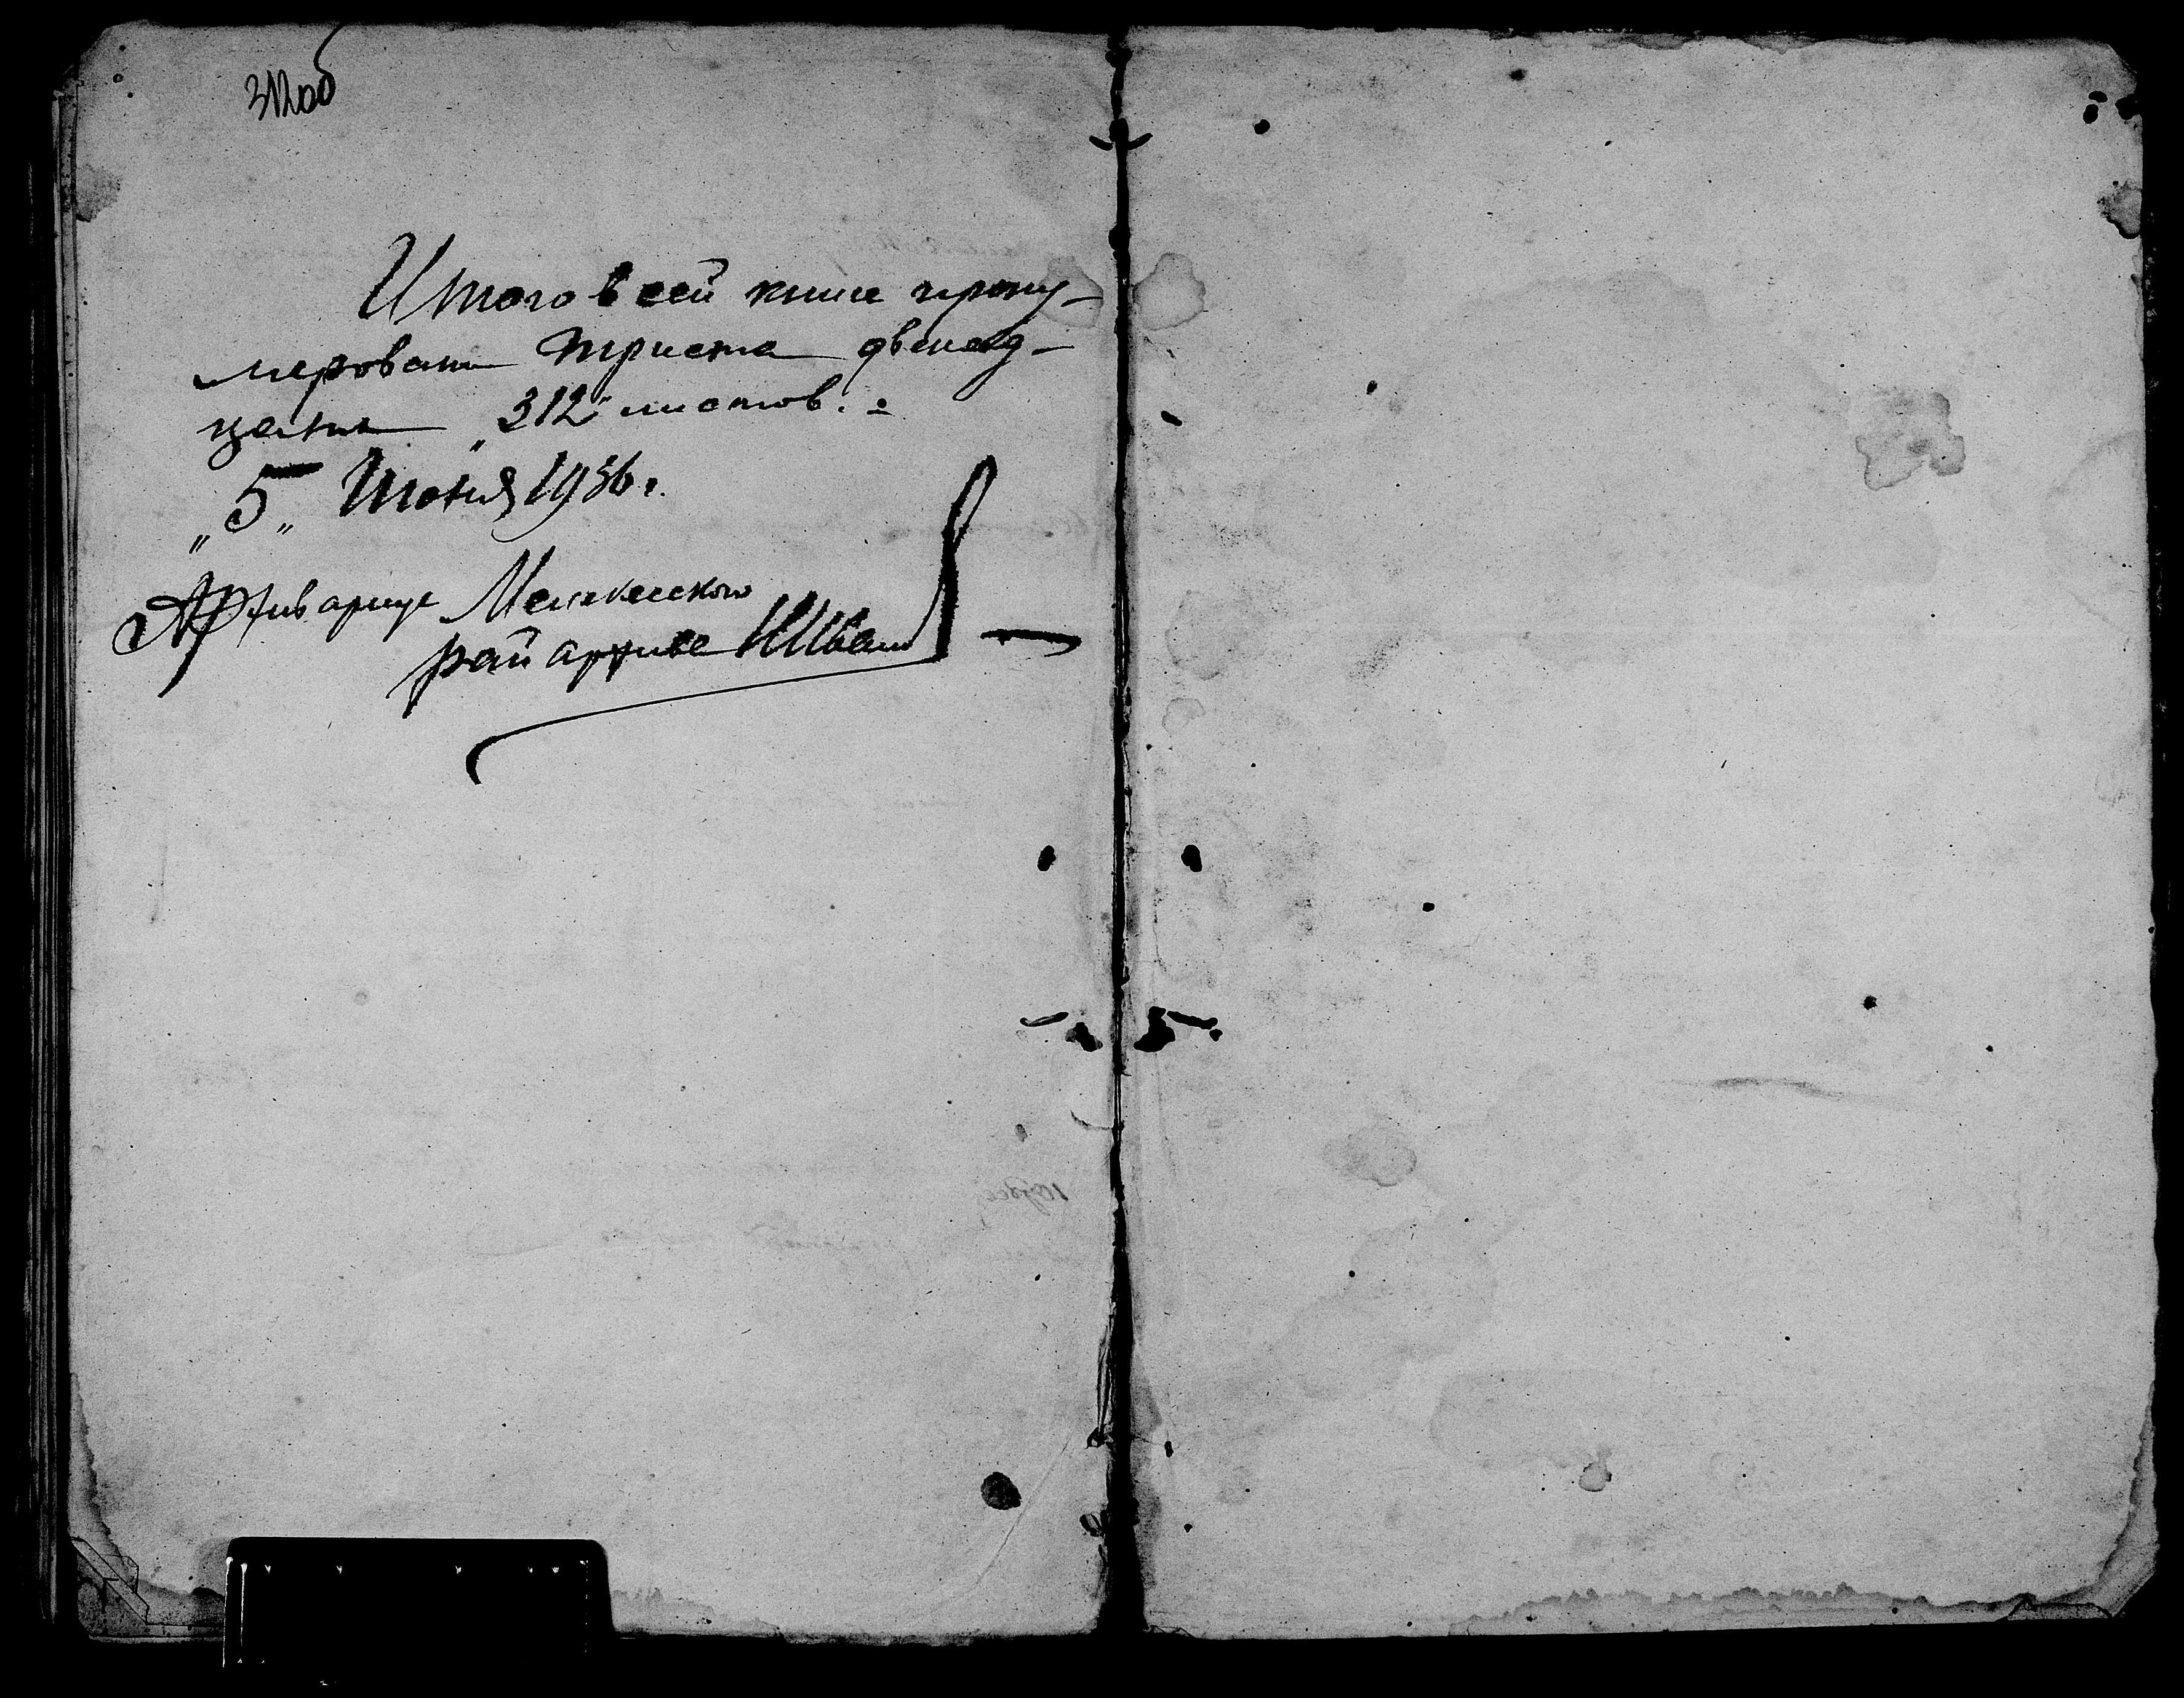 312об
Итого в сей книге прону-
мерован триста двенад-
цать „312" листов.
„5" Июня 1936 г.
Архивариус Мелекесского
рай архива